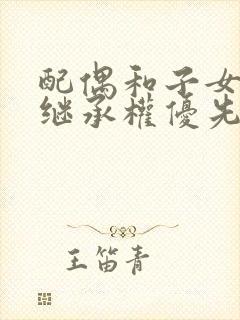 配偶和子女
继承權優先
王笛青